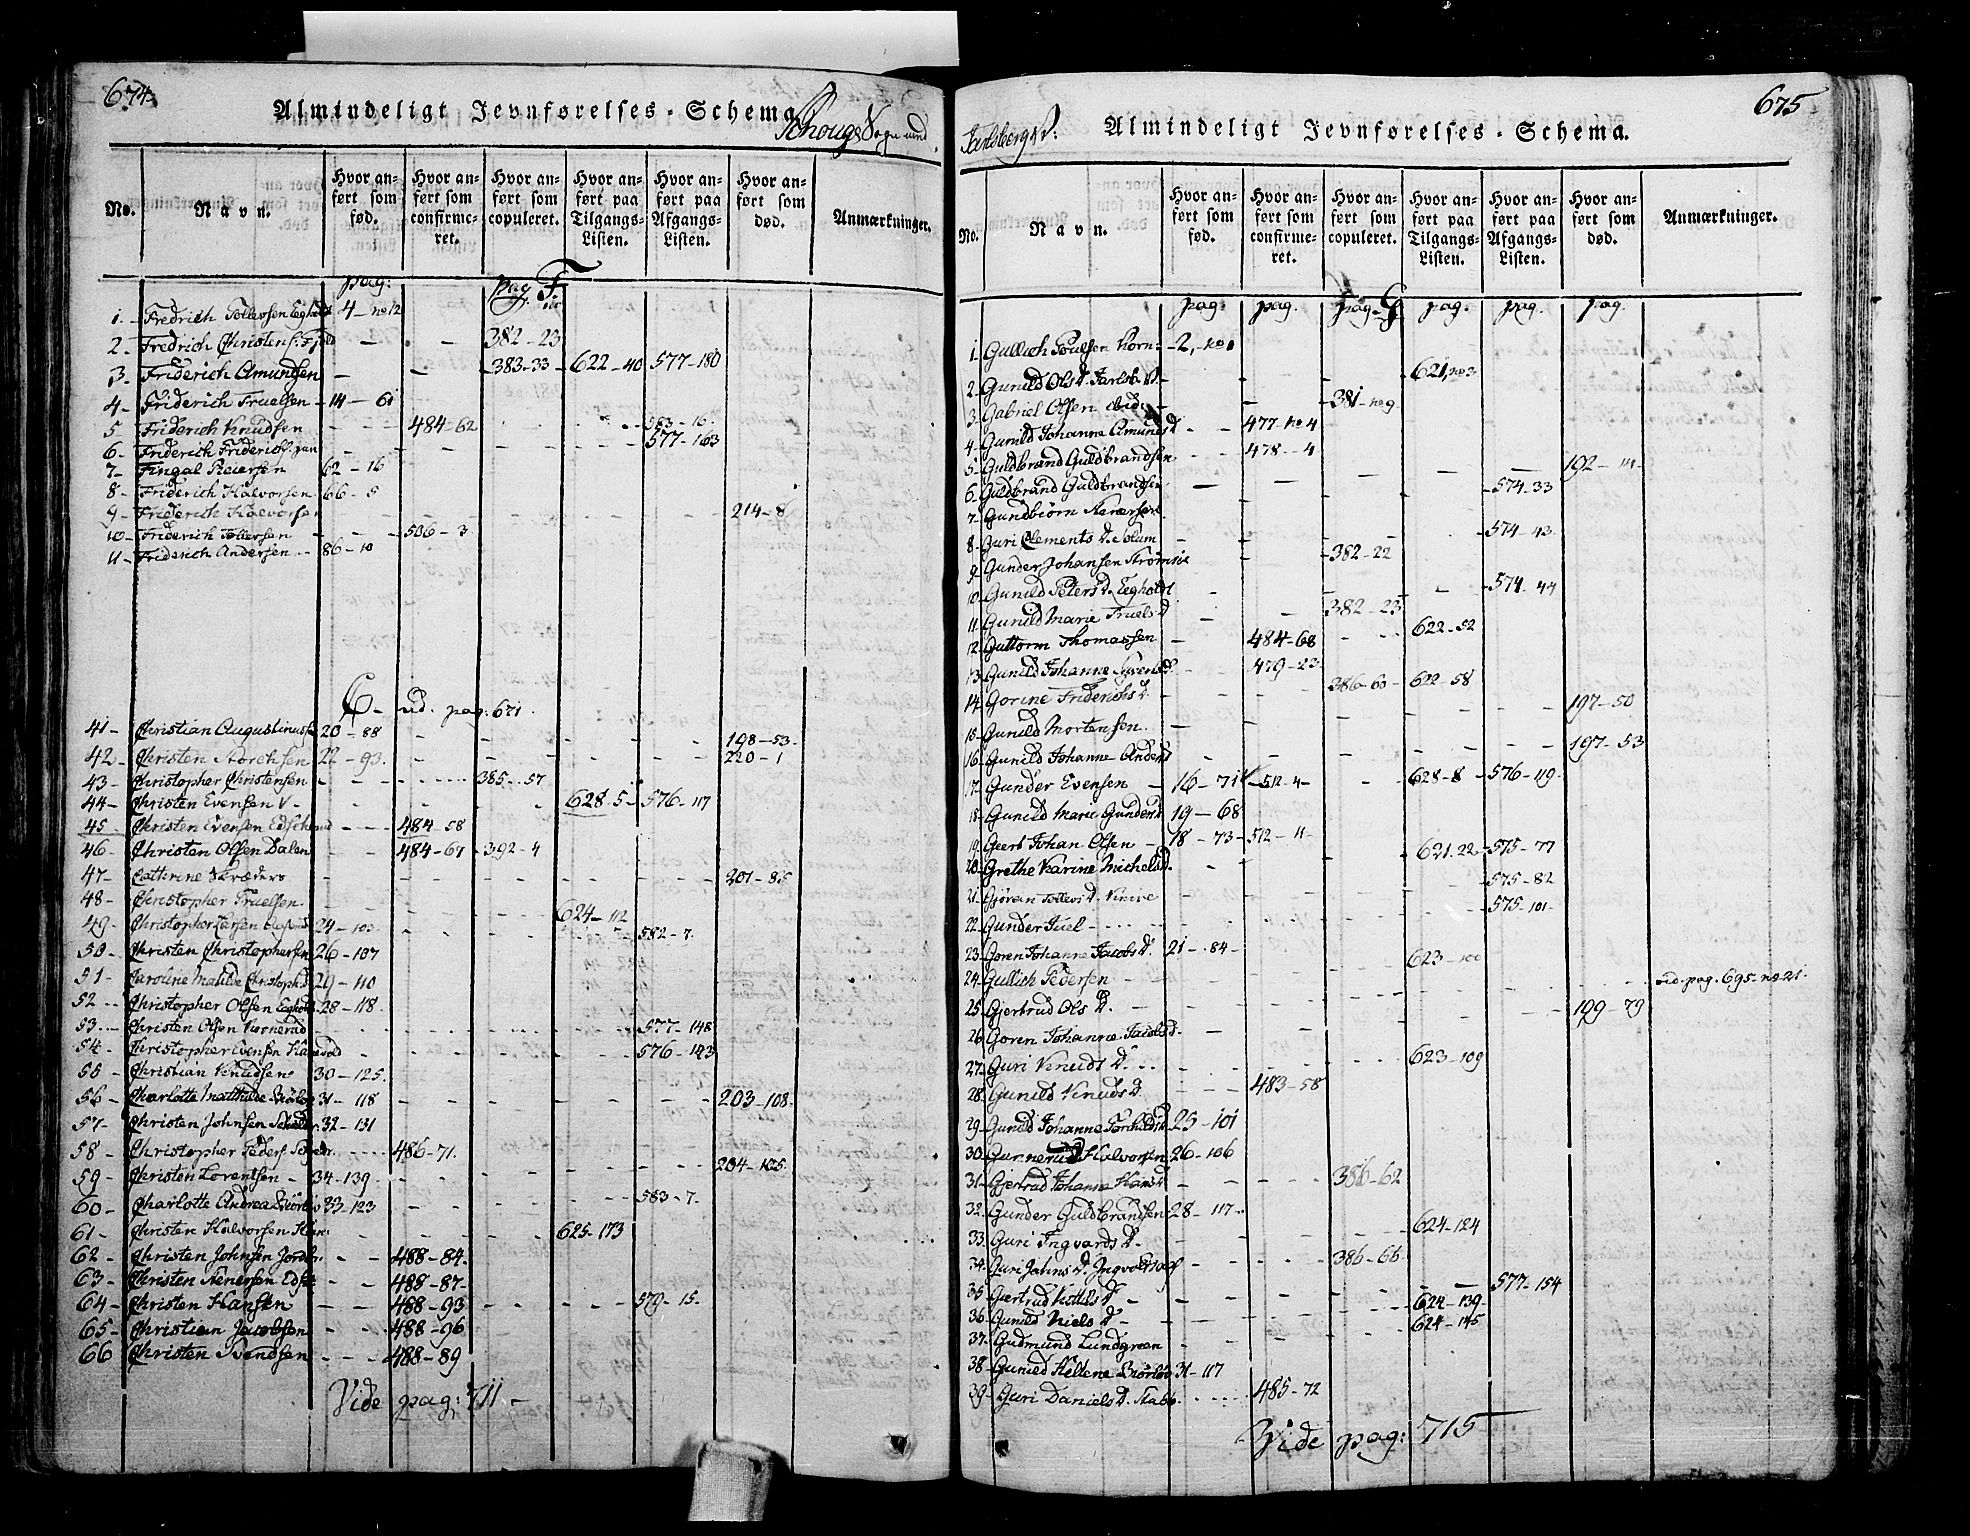 674
Almindeligt Jevnførelses-Schema
Schouger Sogn
No. Navn. Hvor anført som fød. Hvor anført som confirmeret. Hvor anført som copuleret. Hvor anført paa Tilgangs-Listen. Hvor anført paa Afgangs-Listen. Hvor anført som død. Anmærkninger.
pag: pag. F
1 - Fredrich Tollefsen 4 - no 12
2 - Fredrich Christens: 382 - 23
3 - Friderich Amundsen - - 383-33 - 622 - 40 577 - 180
4 - Friderich Truelsen - 14 - 61
5 Friderich Knudsen - - - 484-62 583 - 16
6 - Friderich Friderichs: jun 577 - 163
7 - Fingal Reiersen 62 - 16
8 - Friderich Halvorsen 66 - 5
9 - Friderich Halvorsen 214 - 8
10 - Friderich Tollefsen 506 - 3
11 - Friderich Andersen 86 - 10
C - vid. pag: 671.
41 - Christian Augustinussen 20 - 88
42 - Christen Storchsen 22 - 93. 198 - 53
43 - Christopher Christensen 385 - 57 220 - 1
44 - Christen Evensen 628 - 5 - 576 - 117
45 Christen Evensen 484 - 58
46 - Christen Olsen Dalen 484 - 67 - 392 - 4
47 - Catterine Skræders 201 - 85
48 - Christopher Truelsen 624 - 112
49 - Christopher Larsen 24 - 103 582 - 7.
50 - Christen Christophersen 26 - 107
51 - Caroline Matilde Christophsd 29 - 110
52 - Christopher Olsen 28 - 118
53 - Christen Olsen 577 - 148
54 - Christopher Evensen 576 - 143
55 - Christian Knudsen 30 - 125.
56 - Charlotte Matthilde 31 - 118 203 - 108
57 - Christen Johnsen 32 - 131
58 - Christopher Peders 486 - 71.
59 - Christen Lorentsen - 34 - 139 204 - 125
60 - Charlotte Andrea 33 - 123 583 - 7.
61 - Christen Halvorsen 625 - 173
62 - Christen Johnsen - - 488 - 84.
63 - Christen - - 488 - 87-
64 - Christen Hansen - - 488 - 93 - 579 - 15.
65 - Christian Jacobsen - 488 - 96
66 Christen Svendsen - - - 488 - 89
Vide pag: 711 -
675
Jarlsberg V:
Almindeligt Jevnførelses-Schema.
No. Navn. Hvor anført som fød. Hvor anført som confirmeret. Hvor anført som copuleret. Hvor anført paa Tilgangs-Listen. Hvor anført paa Afgangs-Listen. Hvor anført som død. Anmærkninger.
pag: pag. pag. G pag. pag. pag.
1. Gullich Poulsen 2, no
2 - Gunild Ols D. 621, no 3
3 - Gabriel Olsen 381 - no 9
4 - Gunild Johanne Amunds D - - 477 - no 4
5 - Guldbrand Guldbrandsen - - 478 - 4 192 - 111
6 - Guldbrand Guldbrandsen 574 - 33
7 - Gundbiørn
8 - Guri Clements D. Solum 574 - 43
9 - Gunder Johansen Strømsøe 382 - 22
10 - Gunild Peters D. Eegholdt 574 - 44
11 - Gunild Marie Truels D 382 - 23
12 - Guttorm Thomassen - 484 - 68 622 - 52
13 - Gunild Johanne 479 - 23
14 - Gorine Friderichs D. - 386 - 60 622 - 58
15 - Gunild Mortensen 197 - 50
16 - Gunild Johanne Anders 197 - 53
17 - Gunder Evensen - 16 - 71 512 - 4 628 - 8 576 - 119
18 - Gunild Marie Gunders 19 - 68
19 - Geert Johan Olsen - 18 - 73 - 512 - 11
20 - Grethe Karine Michelsd. 621. 22 - 575 - 77
21 - Gjøran Tollevs D. 575 - 82
22 - Gunder Juel 575 - 101
23 - Goren Johanne Jacobs D. 21 - 84 -
24 - Gullich Pedersen 623 - 100
25 - Gjertrud Ols D. vid. pag. 695. no 21.
26 - Goren Johanne Jacobsd. 199 - 79
27 - Guri Knuds D. 623 - 109
28 - Gunild Knuds D. 483 - 58
29 - Gunild Johanne 25 - 101
30 - Halvorsen 26 - 106
31 - Gjertrud Johanne Hans D 386 - 62
32 - Gunder Guldbrandsen 28 - 117 -
33 - Guri Ingvards D. 624 - 124
34 - Guri Jahns D. 386 - 66
35 - Gjertrud D - 577 - 154
36 - Gunild Niels D - 624 - 139
37 - Gudmund Lundgreen - 624 - 145
38 - Gunild Hellene 31 - 117
39 - Guri Daniels D. 485 - 72
Vide pag: 715